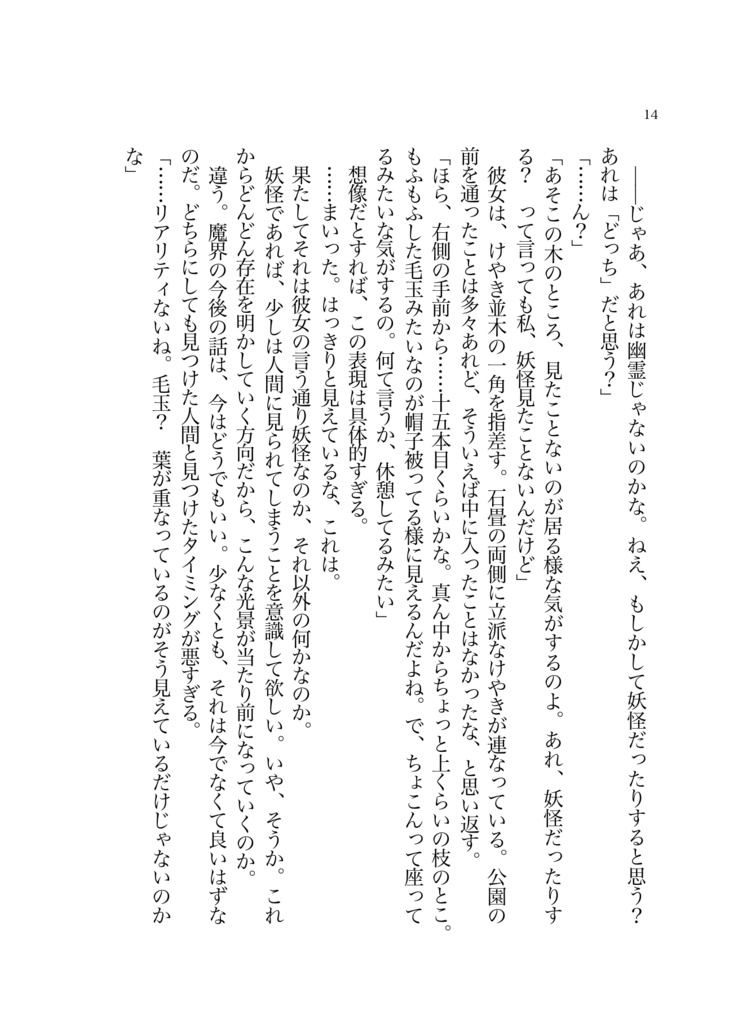 14
――じゃあ、あれは幽霊じゃないのかな。ねえ、もしかして妖怪だったりすると思う?
あれは「どっち」だと思う?」
「……ん?」
「あそこの木のところ、見たことないのが居る様な気がするのよ。あれ、妖怪だったりす
る? って言っても私、妖怪見たことないんだけど」
彼女は、けやき並木の一角を指差す。石畳の両側に立派なけやきが連なっている。公園の
前を通ったことは多々あれど、そういえば中に入ったことはなかったな、と思い返す。
「ほら、右側の手前から……十五本目くらいかな。真ん中からちょっと上くらいの枝のとこ。
もふもふした毛玉みたいなのが帽子被ってる様に見えるんだよね。で、ちょこんって座って
るみたいな気がするの。何て言うか、休憩してるみたい」
想像だとすれば、この表現は具体的すぎる。
……まいった。はっきりと見えているな、これは。
果たしてそれは彼女の言う通り妖怪なのか、それ以外の何かなのか。
妖怪であれば、少しは人間に見られてしまうことを意識して欲しい。いや、そうか。これ
からどんどん存在を明かしていく方向だから、こんな光景が当たり前になっていくのか。
違う。魔界の今後の話は、今はどうでもいい。少なくとも、それは今でなくて良いはずな
のだ。どちらにしても見つけた人間と見つけたタイミングが悪すぎる。
「……リアリティないね。毛玉? 葉が重なっているのがそう見えているだけじゃないのか
な」